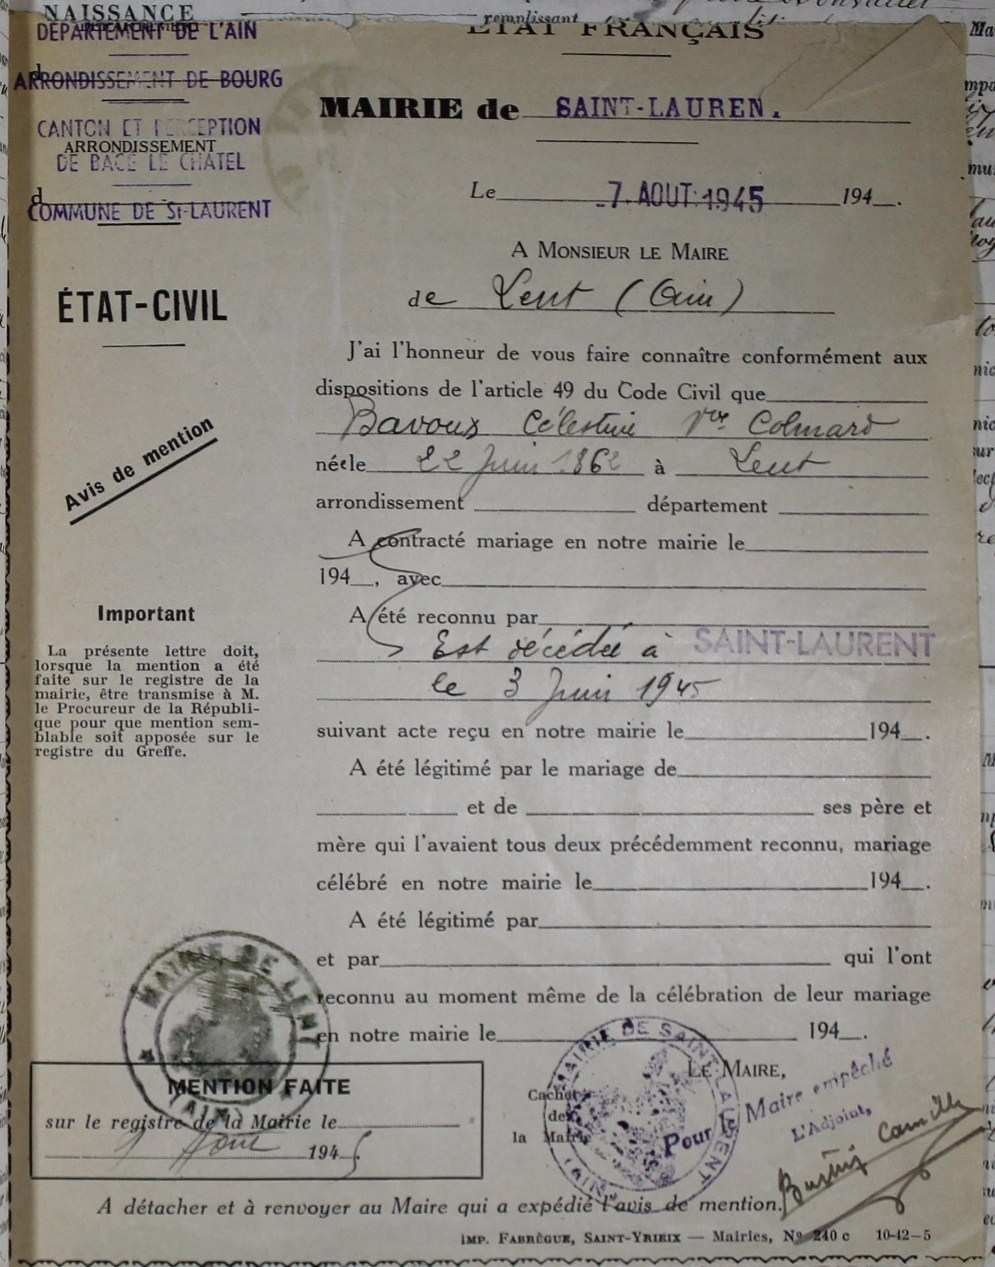 NAISSANCE
remplissant
DÉPARTEMENT DE L'AIN
ÉTAT FRANÇAIS
d
ARRONDISSEMENT DE BOURG
MAIRIE de SAINT-LAUREN.
CANTON ET PERCEPTION
ARRONDISSEMENT
DE BAGÉ LE CHATEL
d
COMMUNE DE St-LAURENT
Le 7. AOUT 1945 194 .
A MONSIEUR LE MAIRE
de Lent (Ain)
ÉTAT-CIVIL
J'ai l'honneur de vous faire connaître conformément aux
dispositions de l'article 49 du Code Civil que
Bavoux Célestine Vve Colmard
née le 22 Juin 1862 à Lent
arrondissement département
Avis de mention
A contracté mariage en notre mairie le
194 , avec
A été reconnu par
Est décédée à SAINT-LAURENT
le 3 Juin 1945
Important
La présente lettre doit,
lorsque la mention a été
faite sur le registre de la
mairie, être transmise à M.
le Procureur de la Républi-
que pour que mention sem-
blable soit apposée sur le
registre du Greffe.
suivant acte reçu en notre mairie le 194 .
A été légitimé par le mariage de
et de ses père et
mère qui l'avaient tous deux précédemment reconnu, mariage
célébré en notre mairie le 194 .
A été légitimé par
et par qui l'ont
reconnu au moment même de la célébration de leur mariage
en notre mairie le 194 .
MAIRIE DE LENT
(AIN)
MENTION FAITE
sur le registre de la Mairie le
Août 1945
LE MAIRE,
Cachet
de
la Mairie
MAIRIE DE SAINT-LAURENT
(AIN)
Pour le Maire empêché
L'Adjoint,
Camille
A détacher et à renvoyer au Maire qui a expédié l'avis de mention.
IMP. FABRÈGUE, SAINT-YRIEIX — Mairies, No 240 c 10-42-5